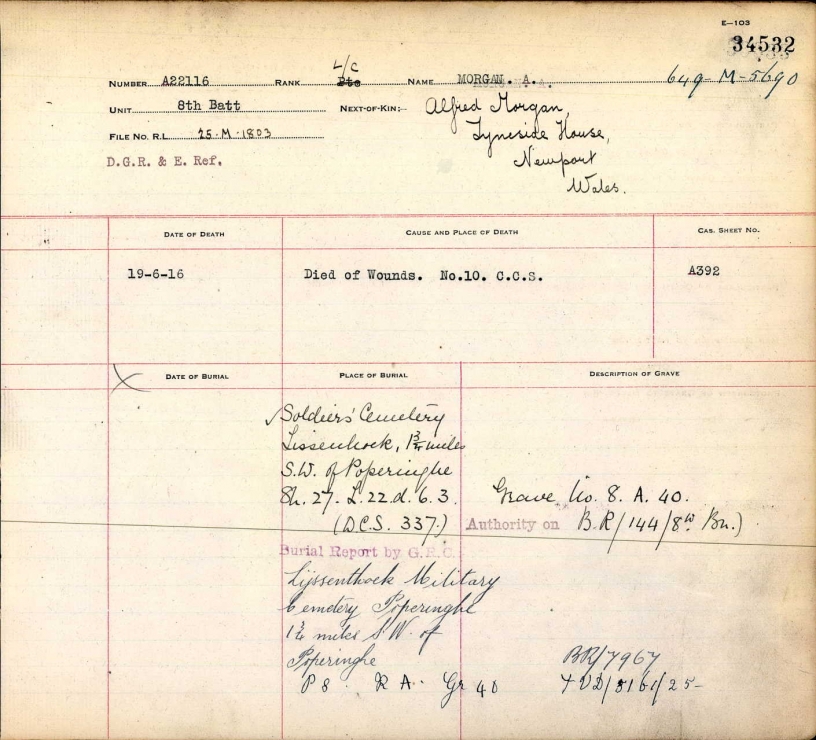 E—103
34532
649-M-5690
NUMBER A22116 RANK L/C Pte NAME MORGAN. A.
UNIT 8th Batt NEXT-OF-KIN;— Alfred Morgan,
Tyneside House,
Newport
Wales.
FILE NO. R.L. 25-M-1803
D.G.R. & E. Ref.
DATE OF DEATH CAUSE AND PLACE OF DEATH CAS. SHEET NO.
19-6-16 Died of Wounds. No.10. C.C.S. A392
DATE OF BURIAL PLACE OF BURIAL DESCRIPTION OF GRAVE
Soldiers' Cemetery
Lissenhoek, 1¾ miles
S.W. of Poperinghe
Sh. 27. L.22.d. 6.3. Grave No. 8. A. 40.
(D.C.S. 337.) Authority on B.R/144/8th Bn.)
Burial Report by G.R.C.
Lijssenthoek Military
Cemetery Poperinghe
1¾ miles S.W. of
Poperinghe BR/7967
P 8. R A. Gr 40